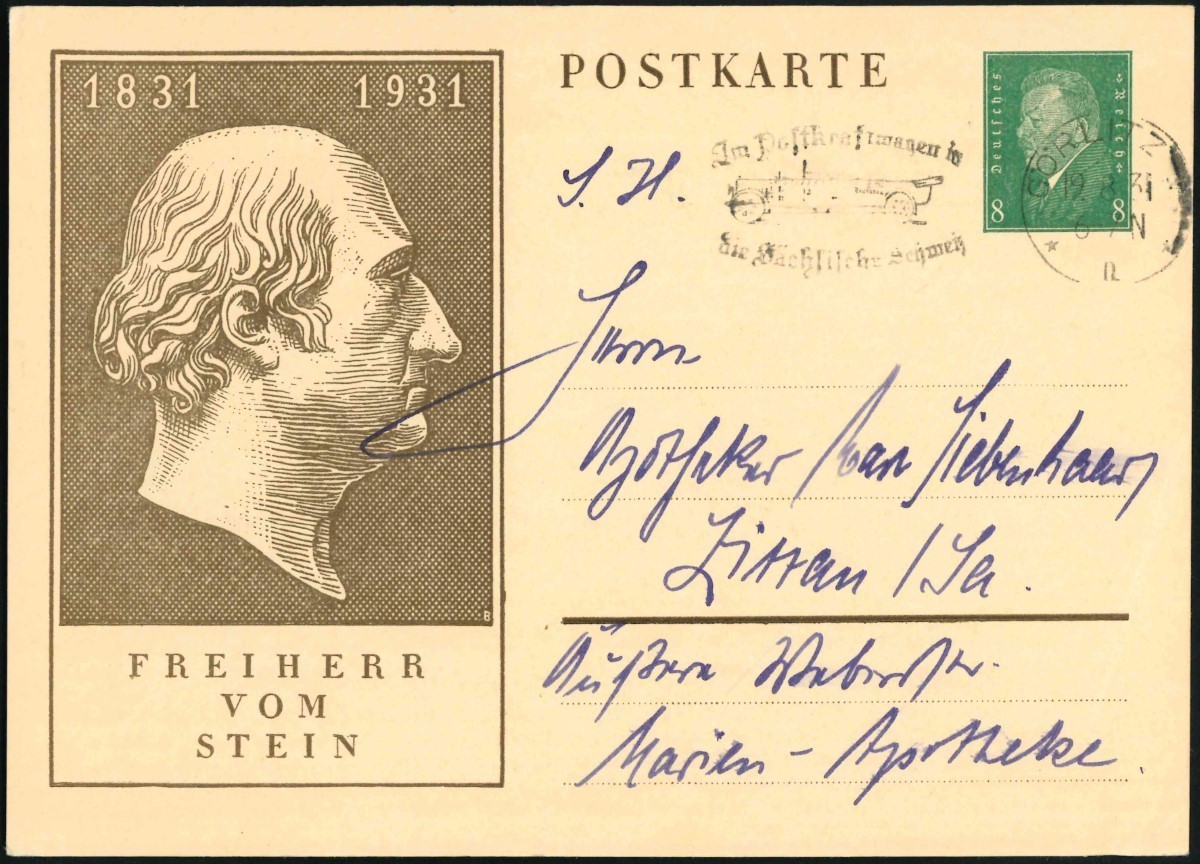 1831 1931
FREIHERR
VOM
STEIN
POSTKARTE
Deutsches Reich
8 8
Im Postkraftwagen in
die Sächsische Schweiz
GÖRLITZ
19.8.31
6-7N
n
S. H.
Herrn
Apotheker Siebenhaar
Zittau / Sa.
Äußere Weberstr.
Marien - Apotheke
B